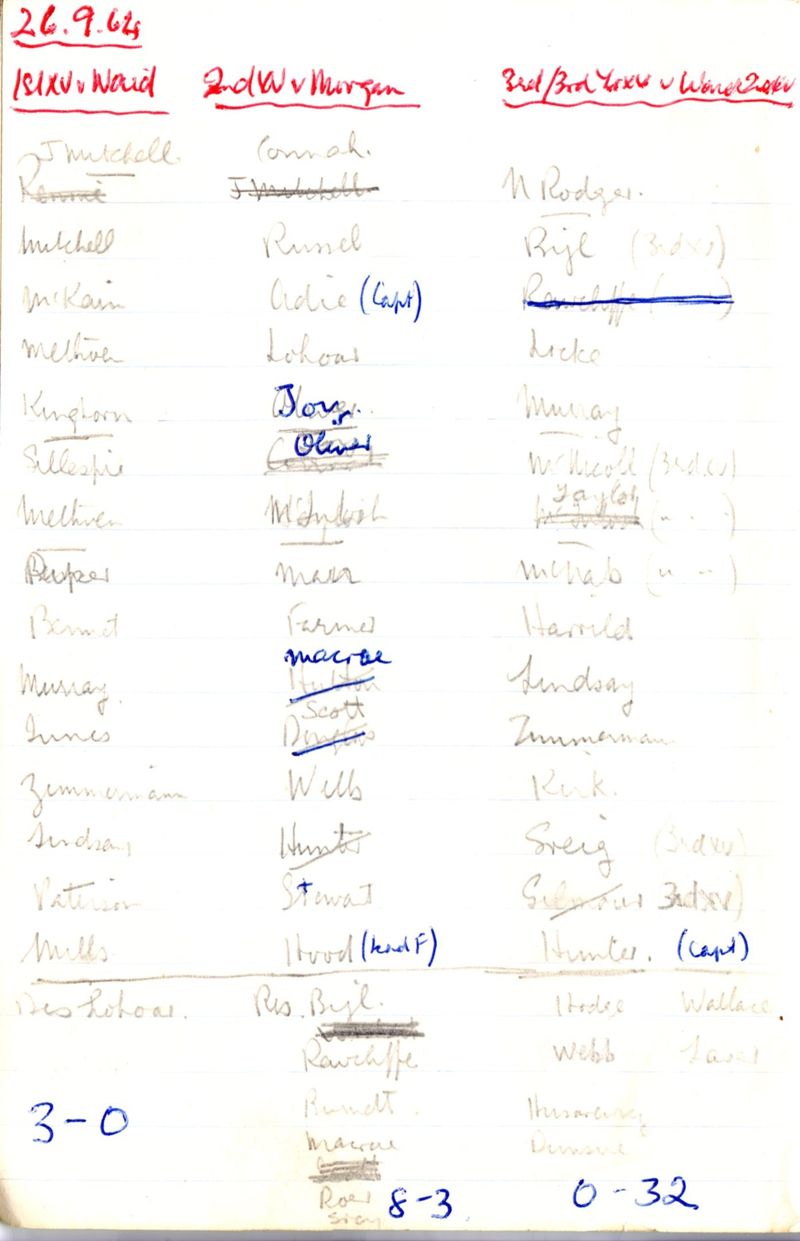 26.9.64
1st XV v Ward
2nd XV v Morgan
3rd/3rd Yr XV v Ward 2nd XV
J Mitchell. Connah.
J Mitchell N Rodger.
Mitchell Russel Bijl (3rd XV)
McKain Adie (Capt) Rawcliffe
Methven Lohoar Licke
Kinghorn Joy. Murray
Gillespie Oliver McNicoll (3rd XV)
Methven McIntosh Taylor (" " ")
Marr McNab (" " ")
Bennet Farmer Harrild
Murray. Macrae Lindsay
Innes Scott Zimmermann
Zimmermann Wells Kirk.
Lindsay Hunter Greig (3rd XV)
Paterson Stewart Gilmour 3rd XV)
Mills Hood (Lead F) Hunter. (Capt)
Res Lohoar. Res. Bijl. Hodge Wallace
Rawcliffe Webb Laver
Rundt.
Macrae
3-0
8-3
0-32